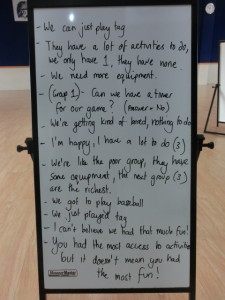 - We can just play tag
- They have a lot of activities to do,
we only have 1, they have none
- We need more equipment.
- (Group 1) - Can we have a timer
for our game? (Answer = No)
- We're getting kind of bored, nothing to do
- I'm happy, I have a lot to do (3)
- We're like the poor group, they have
some equipment, the next group (3)
are the richest.
- we got to play baseball
- We just played tag
- I can't believe we had that much fun!
- You had the most access to activities
but it doesn't mean you had
the most fun!